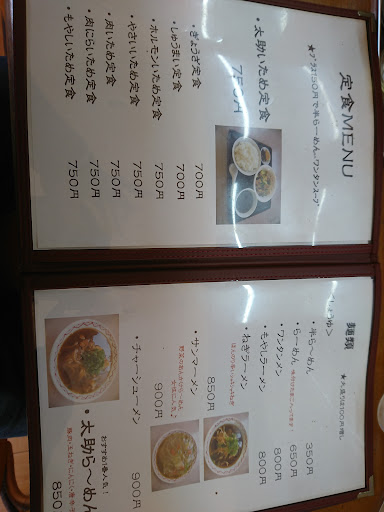 定食MENU
・太助いため定食 750円
・ぎょうざ定食 700円
・しゅうまい定食 700円
・ホルモンいため定食 750円
・やさいいため定食 750円
・肉いため定食 750円
・肉にらいため定食 750円
・もやしいため定食 750円
麺類
★大盛り100円増し
・半らーめん 350円
・らーめん 650円
・ワンタンメン 800円
・もやしラーメン 800円
・ねぎラーメン 850円
・サンマーメン 900円
・チャーシューメン 900円
おすすめ!1番人気!
・太助ら〜めん
850